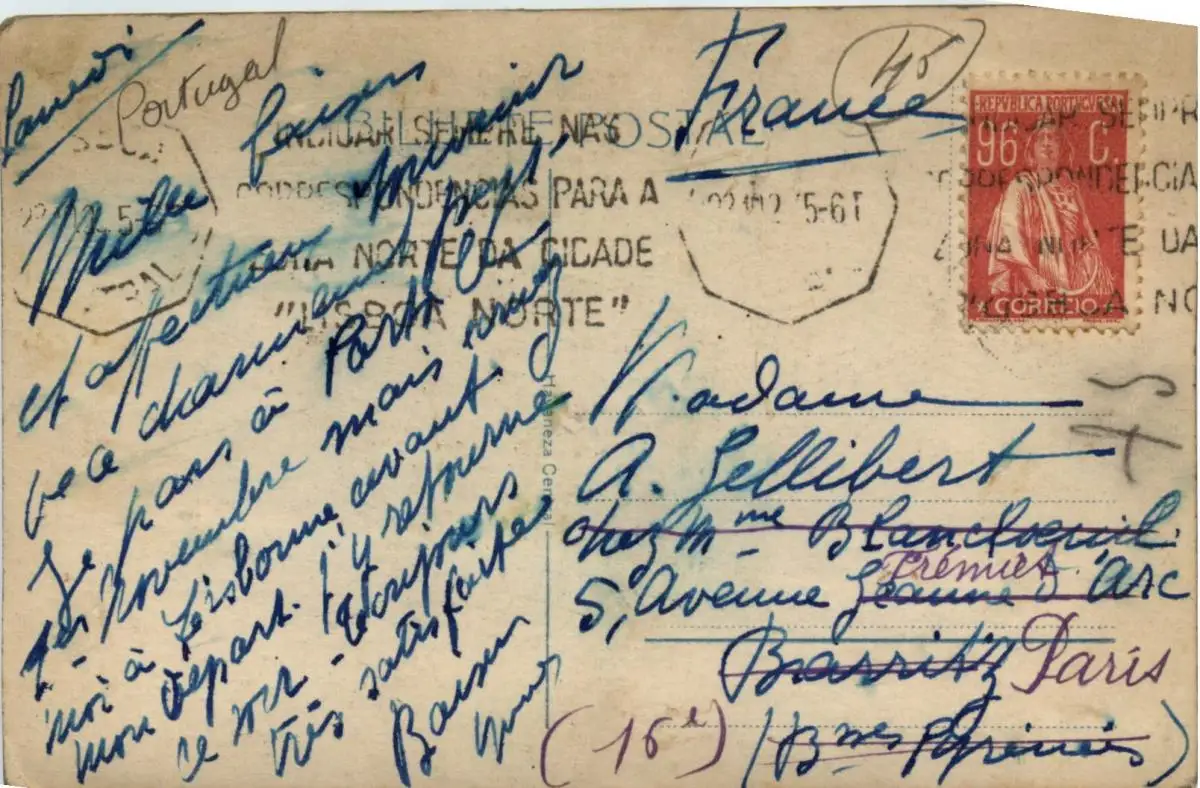 Samedi
Portugal
Mille baisers
et affectueux souvenir
de ce charmant pays.
Je pars à Porto le
1er novembre mais
moi à Lisbonne avant
mon départ. J'y retourne
ce soir - toujours
très satisfaite
Baisers
BILHETE POSTAL
France
45
INDICAR SEMPRE NAS
CORRESPONDENCIAS PARA A
ZONA NORTE DA CIDADE
"LISBOA NORTE"
REPUBLICA PORTUGUESA
96 C.
CORREIO
Havaneza Central
Madame
A. Gellibert
chez Mme Blancheuil
5, Avenue Jeanne d'Arc
Frémiet
Biarritz Paris
(16e) (Bses Pyrénées)